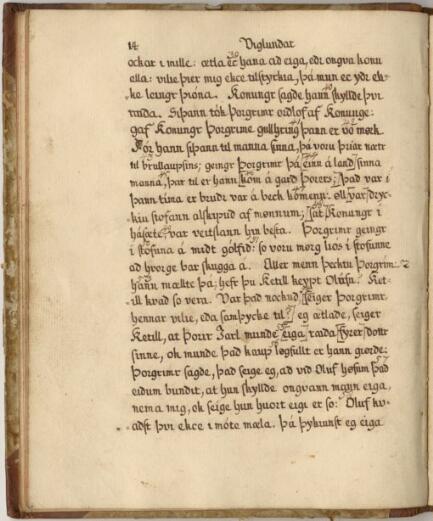 14 Viglundar
ockar i mille: ætla eg hana ad eiga, edr ongva konu
ella: vilie þier mig ekce tilstyrkia, þá mun ec ydr ek-
ke leingr þiona. Konungr sagde hann skyllde þvi
ráda. Siþann tók Þorgrimr ordlof af Konunge:
gaf Konungr Þorgrime gullhring þann er vó mørk.
Fór hann siþann til manna sinna, þá voru þriár nætr
til brullaupsins; geingr Þorgrimr þá einn á land sinna
manna, þar til er hann kom á gard Þorers; þad var i
þann tima er brudr var á beck komenn: øll var dryc-
kiu stofann alskipud af mønnum; sat Konungr i
hásæte, var veitslann hin besta. Þorgrimr geingr
i stofuna á midt golfid: so voru mørg liós i stofunne
ad hvorge bar skugga á. Aller menn þecktu Þorgrim:
hann mælte þá; hefr þu Ketill keypt Olufu. Ket-
ill kvad so vera. Var þad nockud seiger Þorgrimr
hennar vilie, eda samþycke til? eg ætlade, seiger
Ketill, at Þorir Jarl munde eiga ráda fyrer dottr
sinne, ok munde þad kaup løgfullt er hann giørde:
Þorgrimr sagde, þad seige eg, ad vid Oluf høfum þad
eidum bundit, at hun skyllde ongvann mann eiga,
nema mig, ok seige hun huort eigi er so: Oluf kv-
adst þvi ekce i móte mæla. Þá þykiunst eg eiga